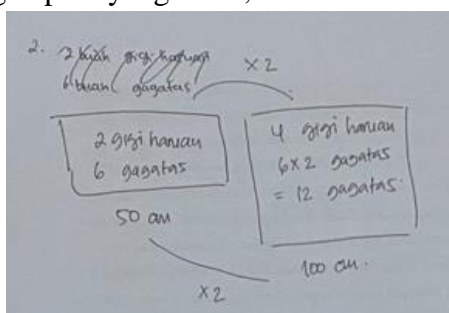 2. 2 buah gigi haruan
6 buah gagatas
x2
2 gigi haruan
6 gagatas
50 cm
4 gigi haruan
6 x 2 gagatas
= 12 gagatas.
100 cm.
x2